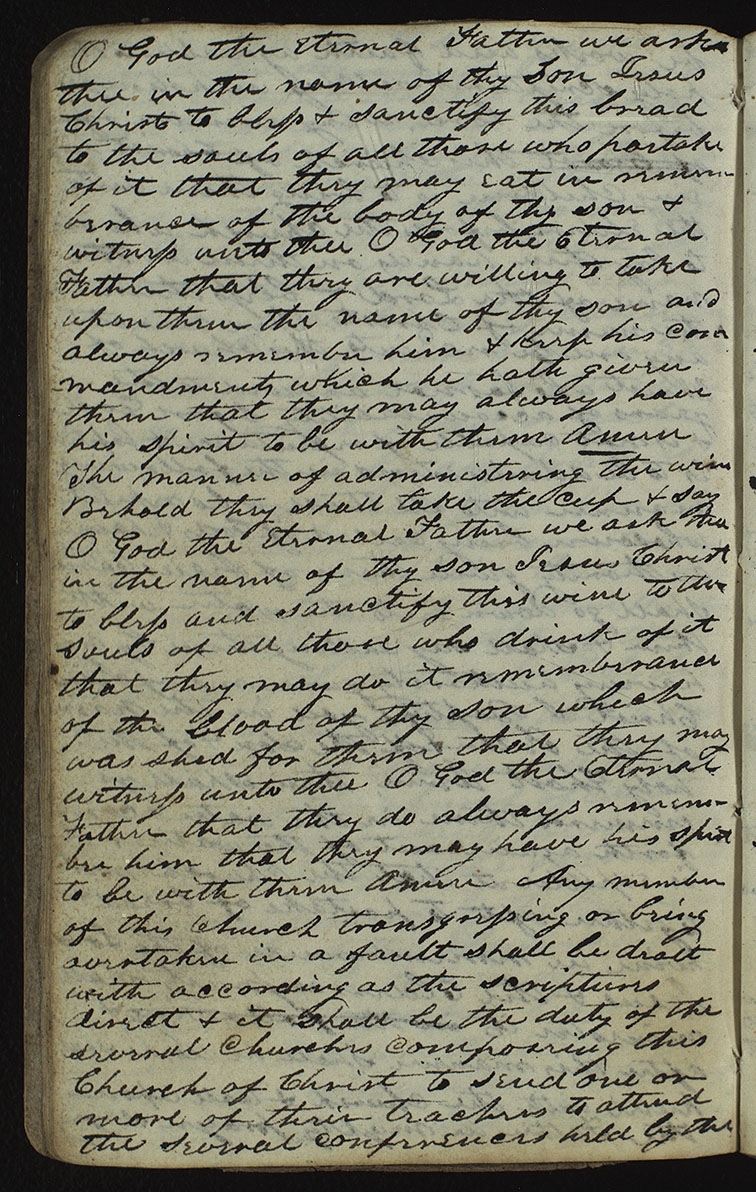 O God the Eternal Father we ask
thee in the name of thy Son Jesus
Christ to bless & sanctify this bread
to the souls of all those who partake
of it that they may eat in remem-
berance of the body of thy son &
witness unto thee O God the Eternal
Father that they are willing to take
upon them the name of thy son and
always remember him & keep his com
mandments which he hath given
them that they may always have
his spirit to be with them Amen
The manner of administering the wine
Behold they shall take the cup & say
O God the Eternal Father we ask thee
in the name of thy son Jesus Christ
to bless and sanctify this wine to the
souls of all those who drink of it
that they may do it rememberance
of the blood of thy son which
was shed for them that they may
witness unto thee O God the Eternal
Father that they do always remem-
ber him that they may have his spirit
to be with them Amen Any member
of this Church transgressing or being
overtaken in a fault shall be dealt
with according as the scriptures
direct & it shall be the duty of the
several Churches composeing this
Church of Christ to send one or
more of their teachers to attend
the several conferences held by the